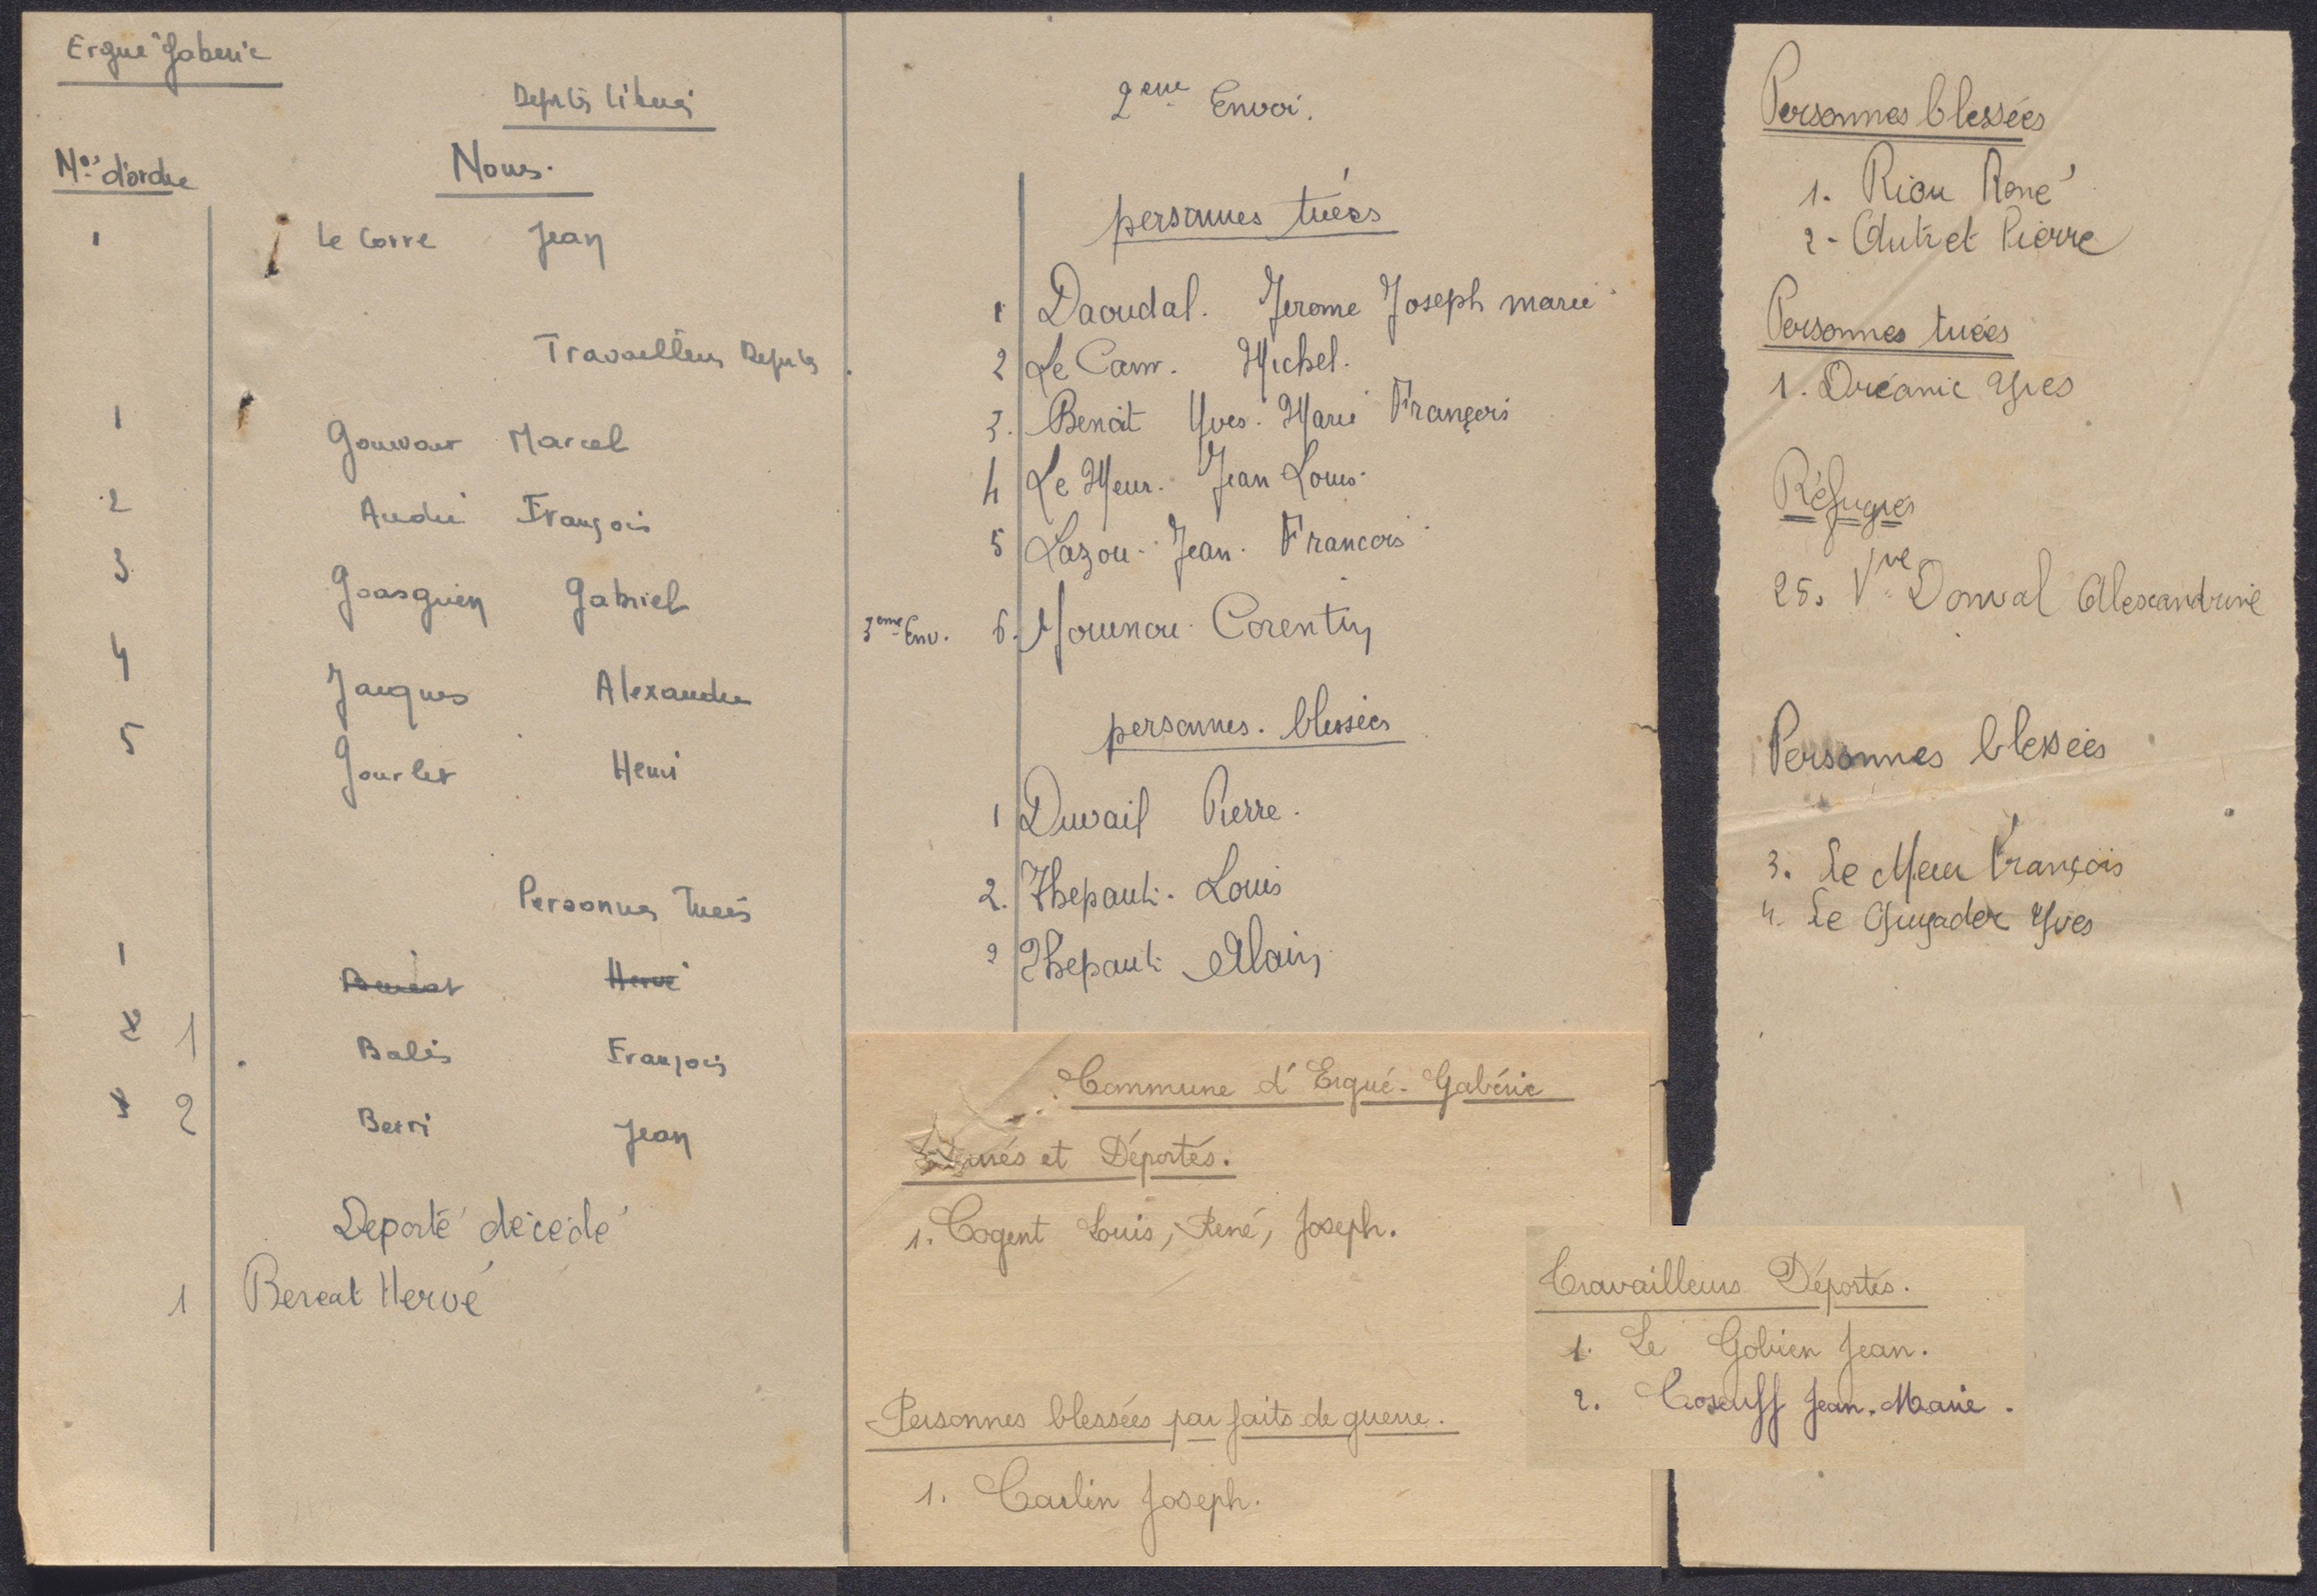 Ergué Gaberic
Déportés libérés
Nos d'ordre Noms.
1 Le Corre Jean
Travailleurs Déportés
1 Marcel
2 André François
3 Goasguen Gabriel
4 Jacques Alexandre
5 Gourlet Henri
Personnes Tuées
1 Hervé
2 1 Balès François
3 2 Berri Jean
Déporté décédé
1 Béréat Hervé
2eme Envoi.
personnes tuées
1 Daoudal. Jerome Joseph marie
2 Le Cam. Michel.
3. Benoit Yves. Marie François
4 Le Meur. Jean Louis.
5 Lazou. Jean. Francois
3eme Env. 6. Corentin
personnes. blessées
1 Duvail Pierre.
2. Thepaut. Louis
2 Thepaut Alain
Commune d'Ergué-Gabéric
et Déportés.
1. Cogent Louis, René, Joseph.
Personnes blessées par faits de guerre.
1. Carlin Joseph.
Personnes blessées
1. Riou René
2- Autret Pierre
Personnes tuées
1. Dréanic Yves
Réfugiés
25. Vve Donval Alexandrine
Personnes blessées
3. Le Meur François
4. Le Guyader Yves
Travailleurs Déportés.
1. Le Gobien Jean.
2. Coseuff Jean-Marie.